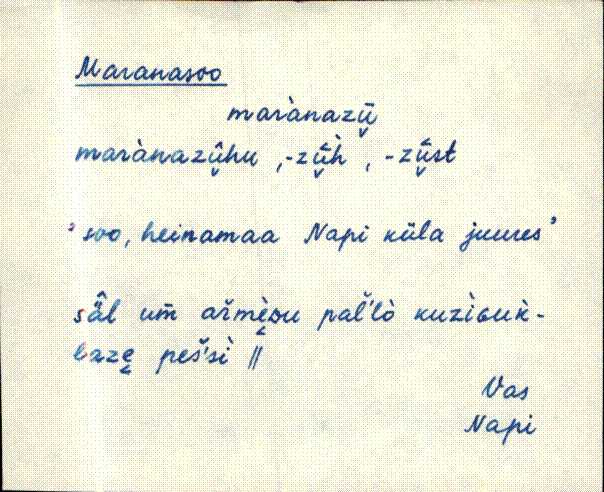 Maranasoo
marànazū̬
marànazû̬hu, -zū̬̀h, -zū̬̂st
'soo, heinamaa Napi küla juures'
sä̂l um̄ ařmè̬ᴅu pal̆'lò kuzìɢuk̀-
ʟaze̬ peš'sì ||
Vas
Napi